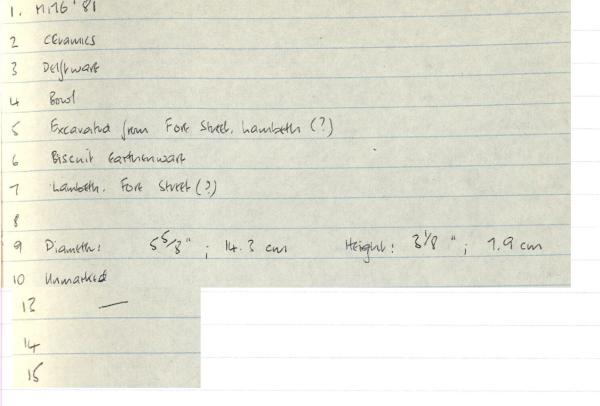 1. M176 '81
2 Ceramics
3 Delftware
4 Bowl
5 Excavated from Fore Street, Lambeth (?)
6 Biscuit Earthenware
7 Lambeth. Fore Street (?)
8
9 Diameter: 5 5/8"; 14.3 cm Height: 3 1/8"; 7.9 cm
10 Unmarked
13 —
14
15